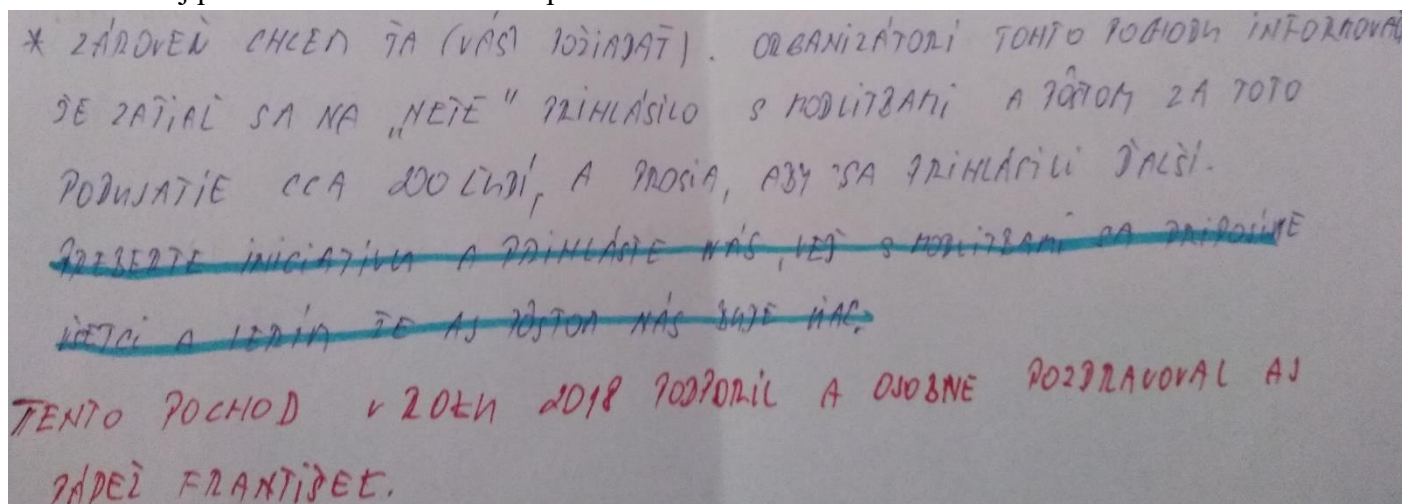 * ZÁROVEŇ CHCEM ŤA (VÁS) POŽIADAŤ). ORGANIZÁTORI TOHTO POCHODU INFORMOVALI
ŽE ZATIAĽ SA NA „NETE" PRIHLÁSILO S MODLITBAMI A PÔSTOM ZA TOTO
PODUJATIE CCA 200 ĽUDÍ, A PROSIA, ABY SA PRIHLÁSILI ĎALŠÍ.
PREBERTE INICIATÍVU A PRIHLÁSTE NÁS, VEĎ S MODLITBAMI SA PRIPOSÍME
VŠETCI A VERÍM ŽE AJ PÔSTOM NÁS BUDE VIAC.
TENTO POCHOD V ROKU 2018 PODPORIL A OSOBNE POZDRAVOVAL AJ
PÁPEŽ FRANTIŠEK.